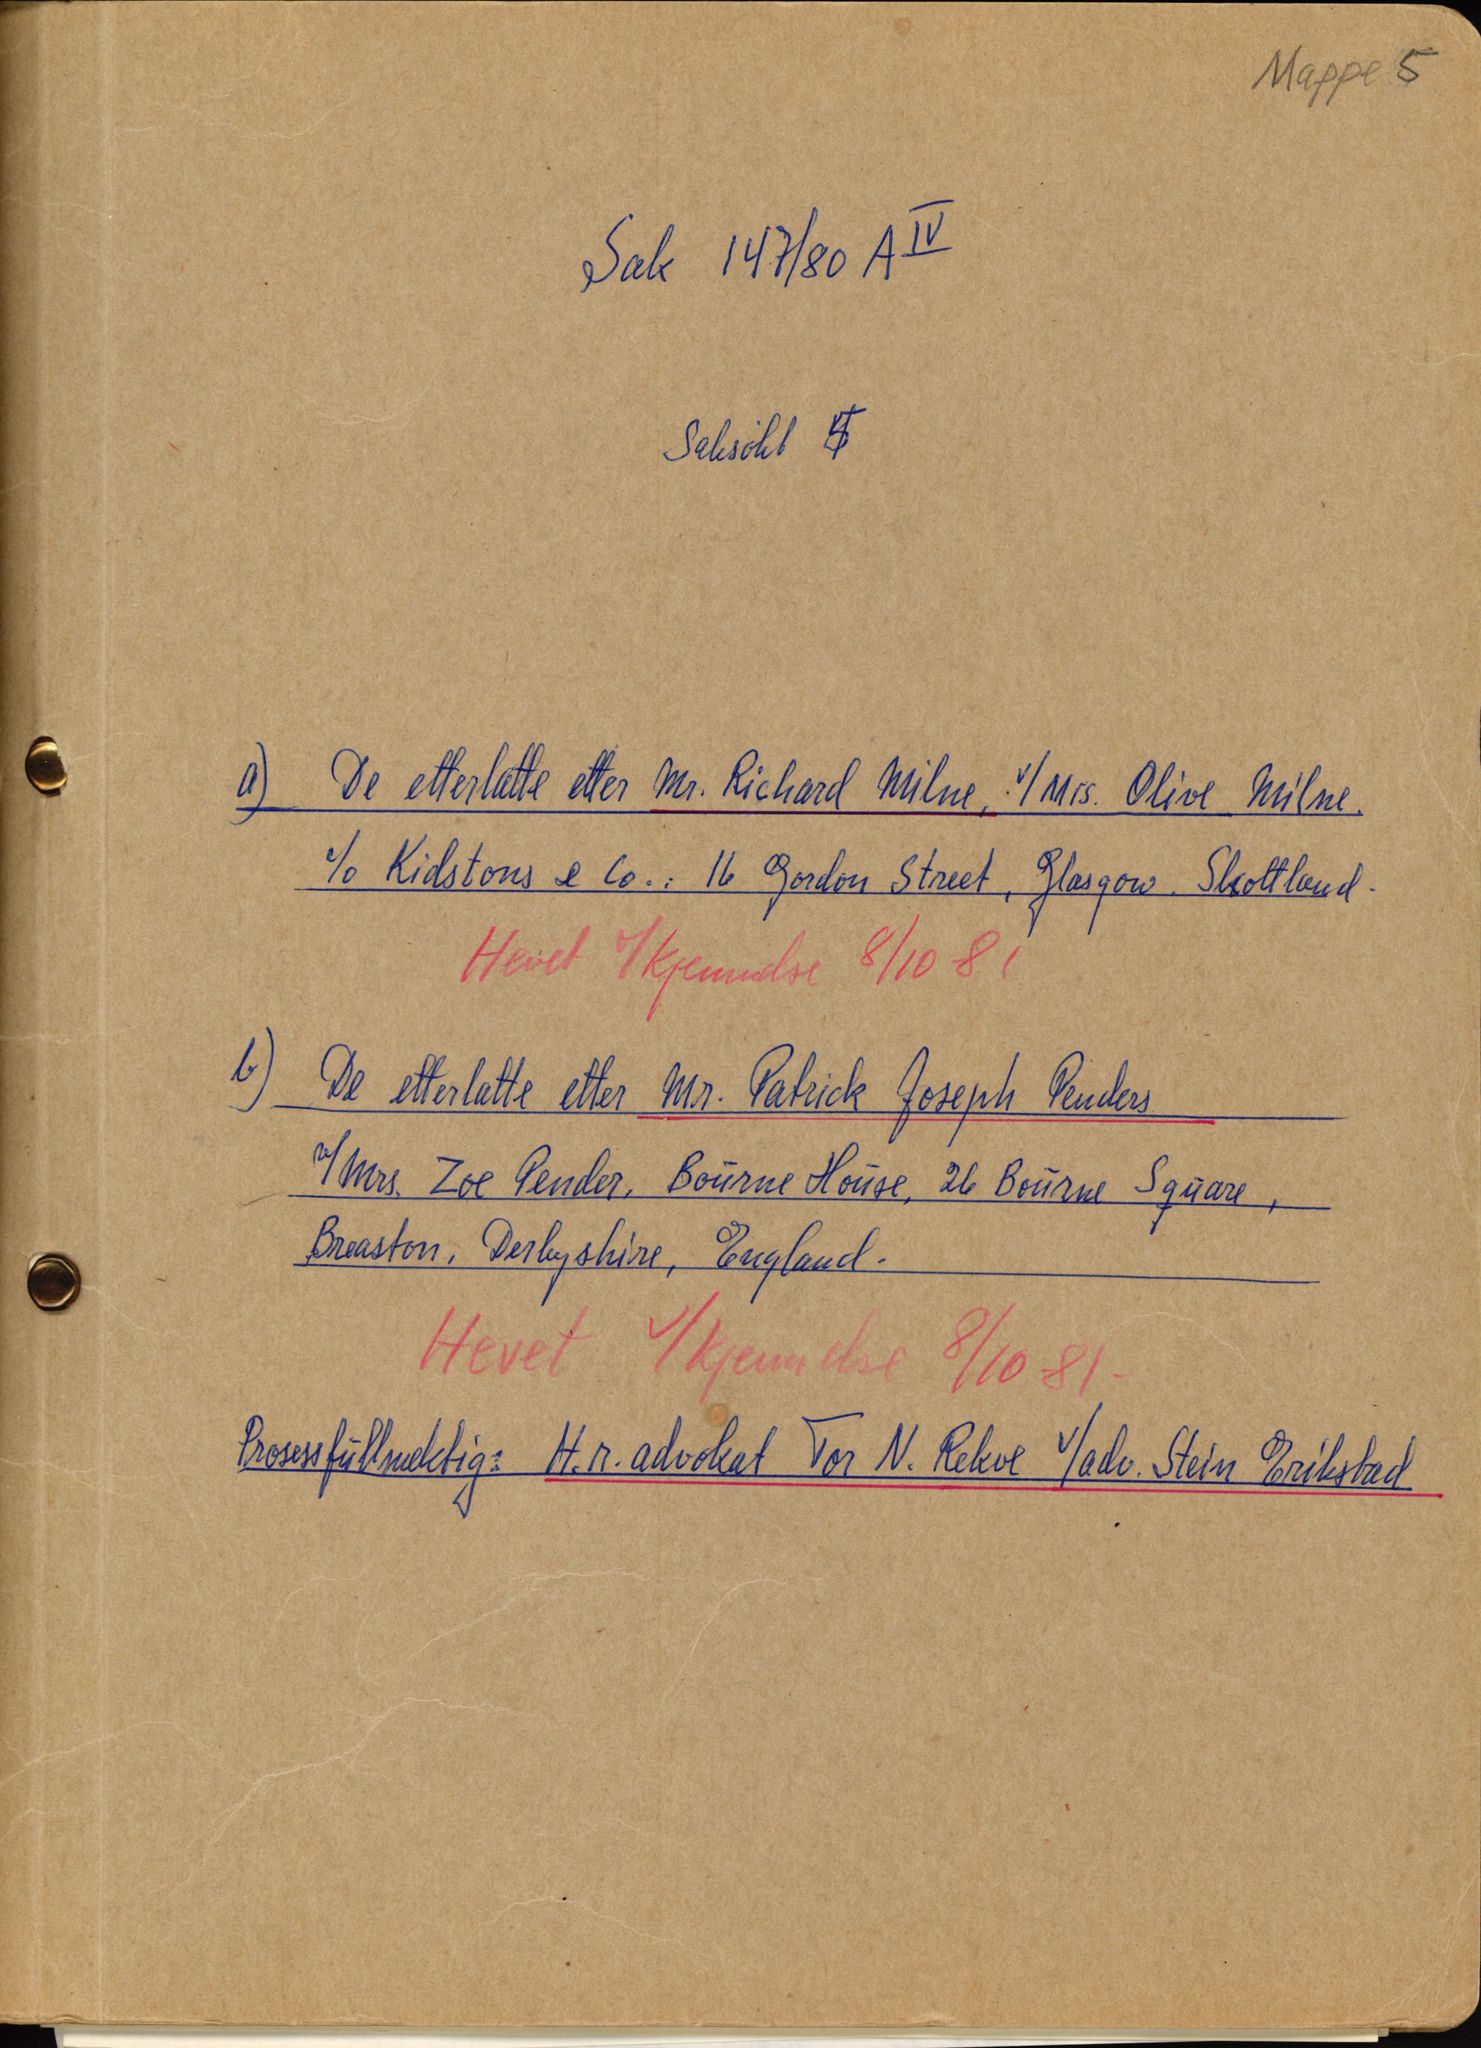 Mappe 5
Sak 147/80 A IV
Saksökt
a) De etterlatte etter Mr. Richard Milne, v/Mrs. Olive Milne.
c/o Kidstons & Co.: 16 Gordon Street, Glasgow. Skottland.
Hevet v/kjennelse 8/10 81
b) De etterlatte etter Mr. Patrick Joseph Penders
v/Mrs. Zoe Pender, Bourne House, 26 Bourne Square,
Breaston, Derbyshire, England.
Hevet v/kjennelse 8/10 81-
Prosessfullmektig: H.r. advokat Tor N. Rekve v/adv. Stein Erikstad